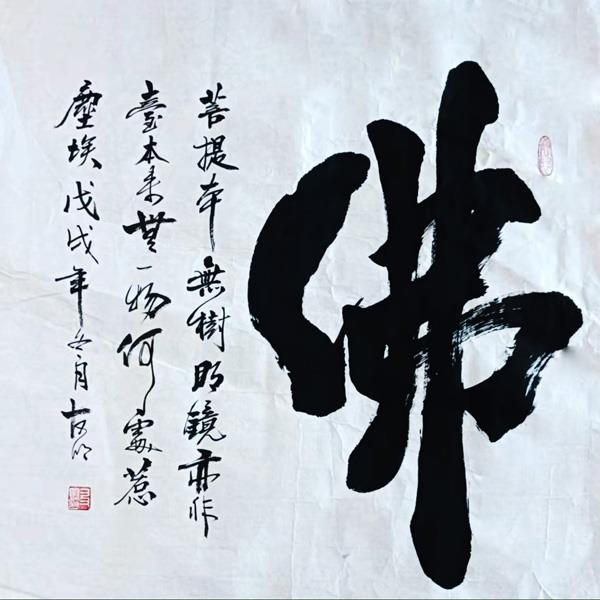 佛
菩提本無樹明鏡亦非
臺本來無一物何處惹
塵埃戊戌年冬月